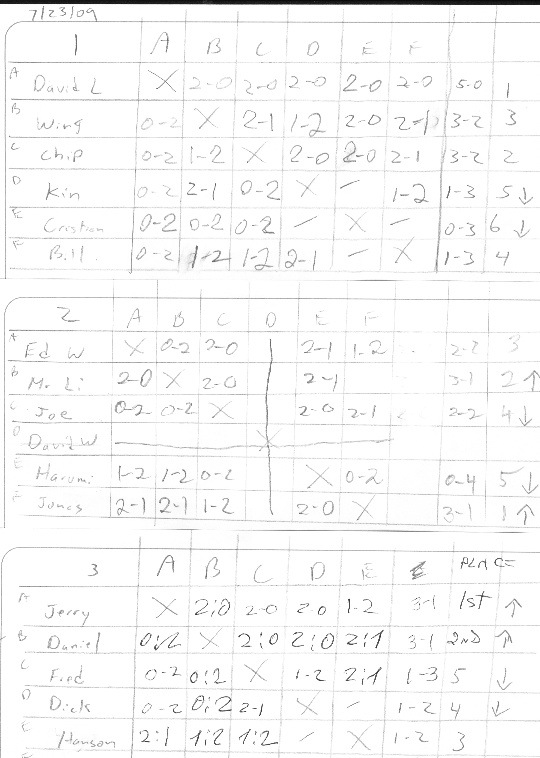 7/23/09
1 A B C D E F
A David L X 2-0 2-0 2-0 2-0 2-0 5-0 1
B Wing 0-2 X 2-1 1-2 2-0 2-1 3-2 3
C Chip 0-2 1-2 X 2-0 2-0 2-1 3-2 2
D Kin 0-2 2-1 0-2 X – 1-2 1-3 5 ↓
E 0-2 0-2 0-2 – X – 0-3 6 ↓
F Bill 0-2 1-2 1-2 2-1 – X 1-3 4
2 A B C D E F
A Ed W X 0-2 2-0 2-1 1-2 2-2 3
B Mr. Li 2-0 X 2-0 2-1 3-1 2 ↑
C Joe 0-2 0-2 X 2-0 2-1 2-2 4 ↓
D David W X
E Harumi 1-2 1-2 0-2 X 0-2 0-4 5 ↓
F Jonas 2-1 2-1 1-2 2-0 X 3-1 1 ↑
3 A B C D E PLACE
A Jerry X 2:0 2-0 2-0 1-2 3-1 1st ↑
B Daniel 0:2 X 2:0 2:0 2:1 3-1 2ND ↑
C Fred 0-2 0:2 X 1-2 2:1 1-3 5 ↓
D Dick 0-2 0:2 2-1 X – 1-2 4 ↓
E Hanson 2:1 1:2 1:2 – X 1-2 3